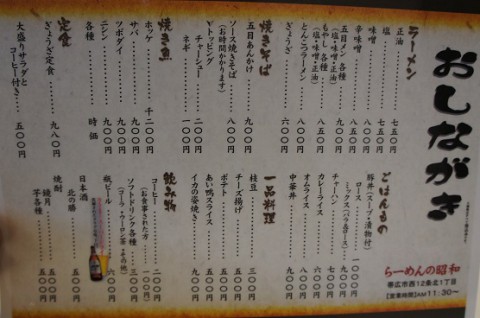 おしながき
ラーメン
正油 七五〇
塩 七五〇
味噌 八五〇
辛味噌
五目メン 各種 九〇〇
(塩・味噌・正油)
もやし 各種 八五〇
(塩・味噌・正油)
とんこつラーメン 八〇〇
ぎょうざ 六〇〇
焼きそば
五目あんかけ 九〇〇
ソース焼きそば 八〇〇
(お時間かかります)
Yトッピング
チャーシュー 二〇〇
ネギ 一〇〇
焼き魚
ホッケ 千二〇〇
サバ 九〇〇
ツボダイ 九〇〇
ニシン 九〇〇
各種 時価
定食
ぎょうざ定食 九八〇
大盛りサラダと
コーヒー付き 五〇〇
ごはんもの
豚丼(スープ・漬物付)
ロース 一〇〇〇
ミックス(バラ&ロース) 九〇〇
チャーハン 七〇〇
カレーライス 六〇〇
オムライス 八〇〇
中華丼 九〇〇
一品料理
枝豆 三〇〇
チーズ揚げ 五〇〇
ポテト 五〇〇
あい鴨スライス 五〇〇
イカの姿焼き 七〇〇
飲み物
コーヒー 二〇〇
(お食事された方) 一〇〇
ソフトドリンク各種 二〇〇
(コーラ・ウーロン茶・その他)
瓶ビール 六〇〇
日本酒
北の勝 五〇〇
焼酎
鏡月 五〇〇
芋各種 五〇〇
らーめんの昭和
帯広市西12条北1丁目
【営業時間】AM11:30〜